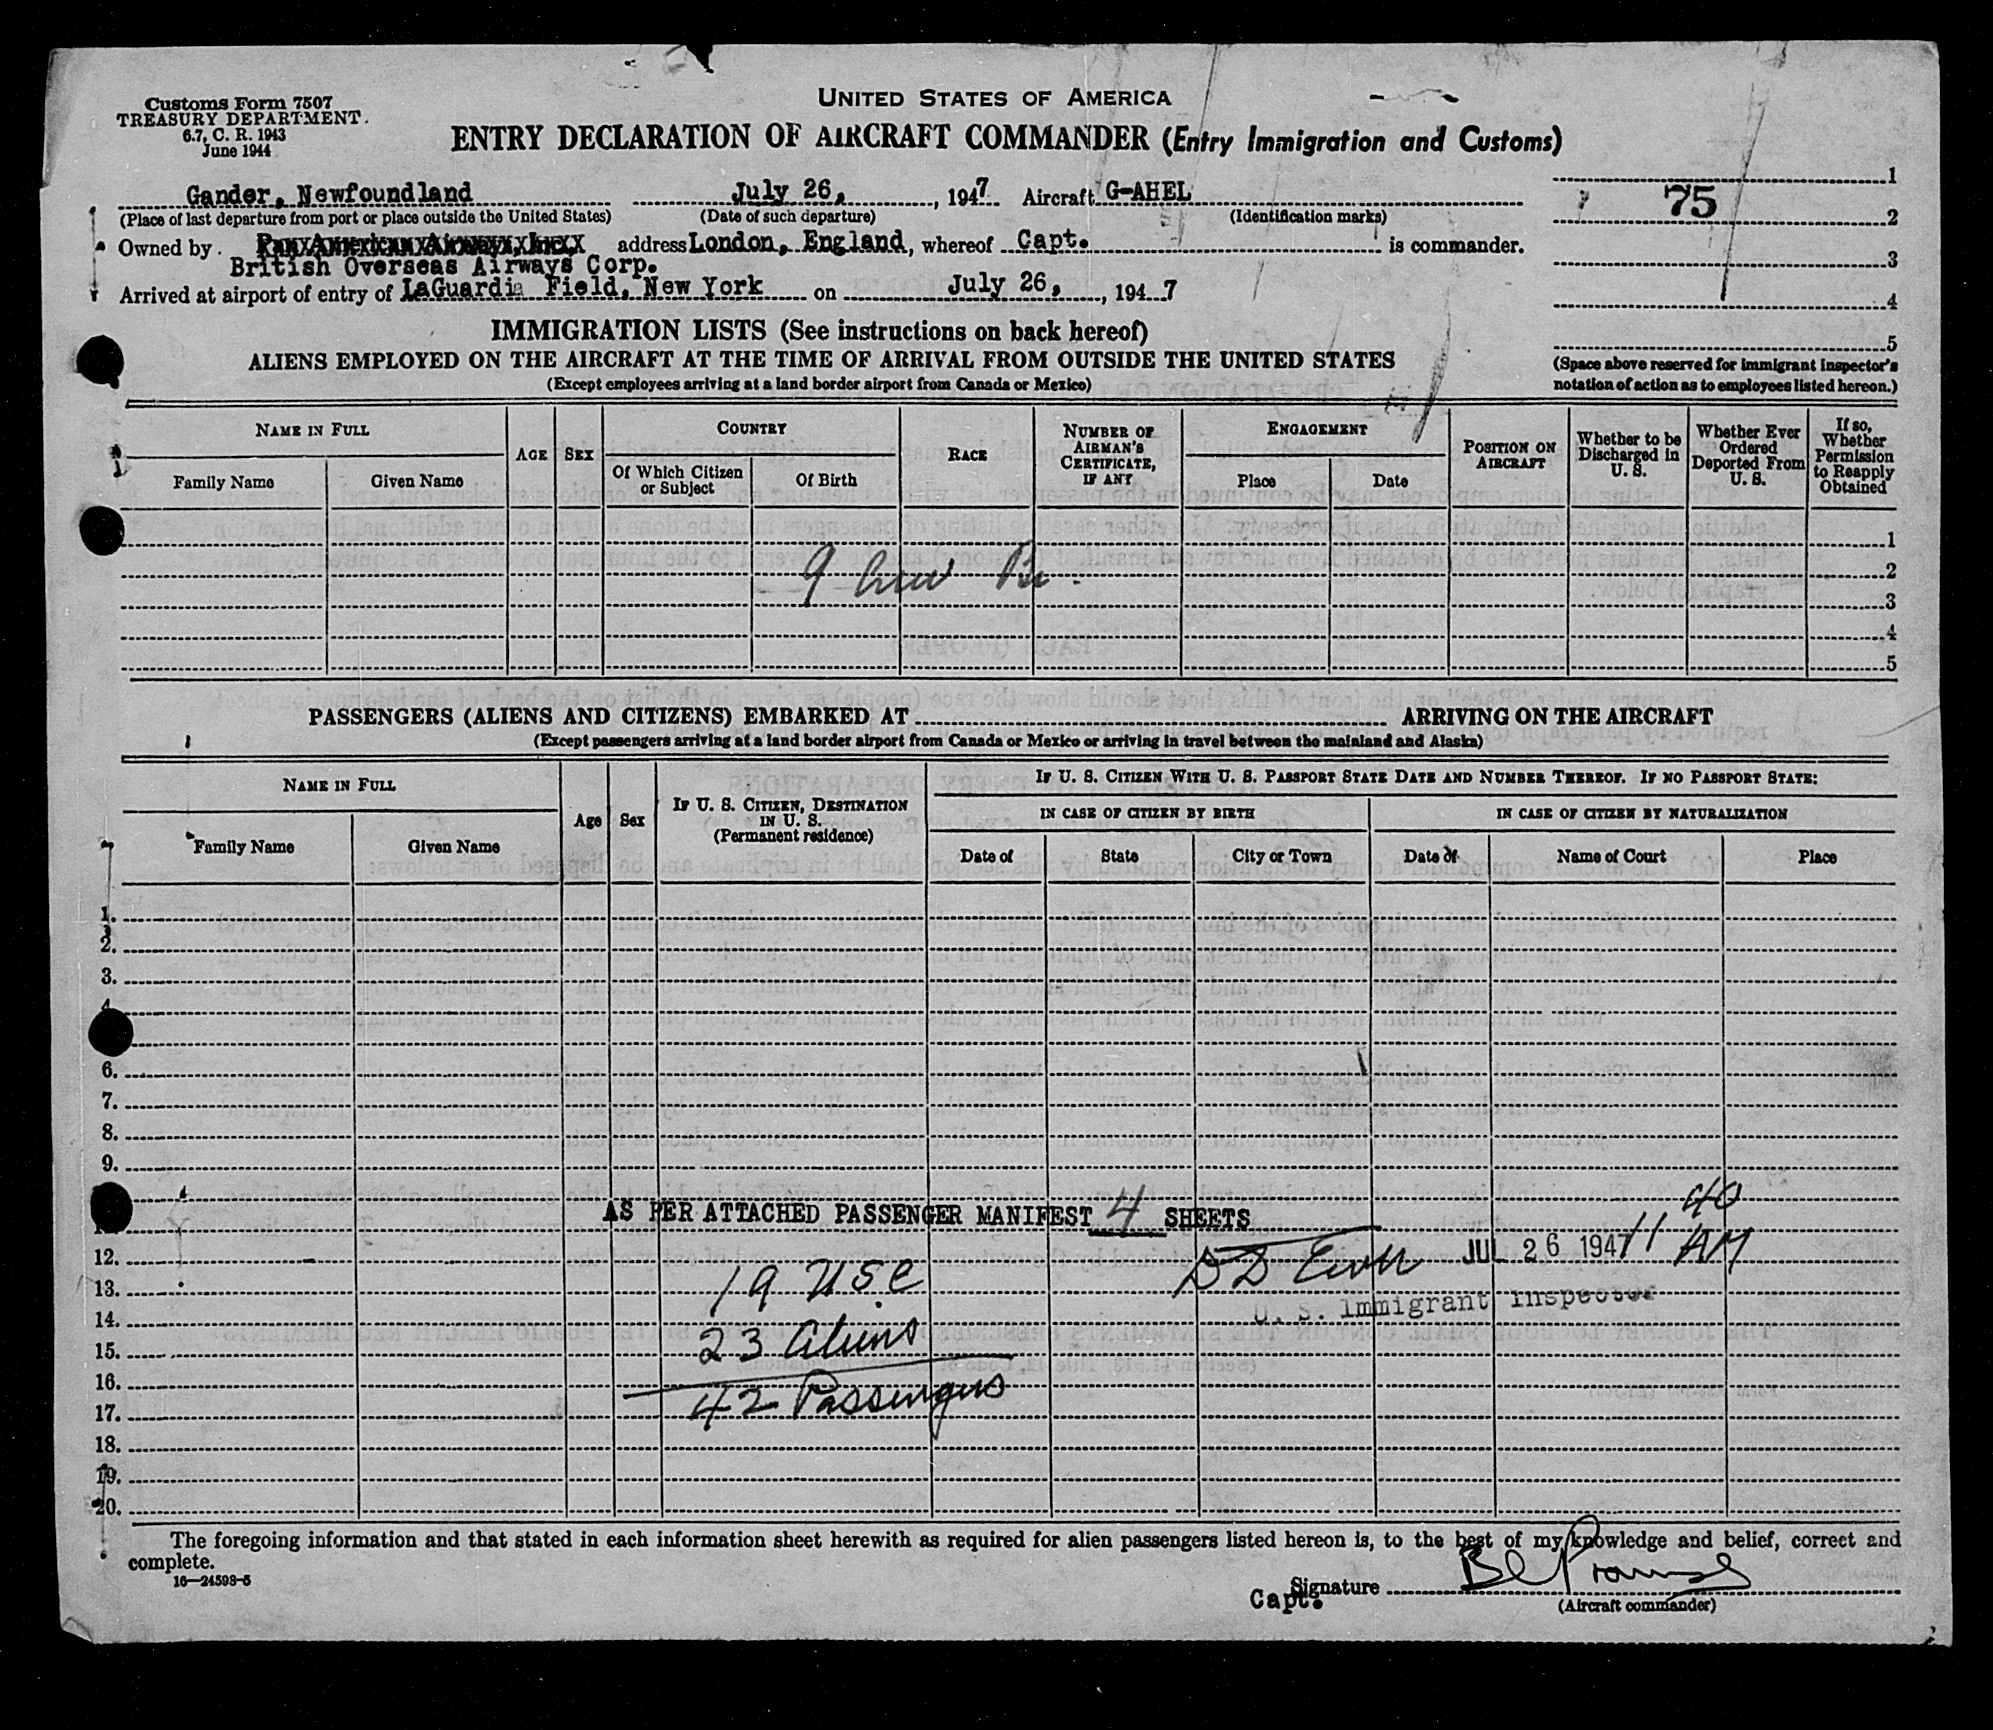 Customs Form 7507
TREASURY DEPARTMENT.
6.7, C. R. 1943
June 1944
UNITED STATES OF AMERICA
ENTRY DECLARATION OF AIRCRAFT COMMANDER (Entry Immigration and Customs)
Gander, Newfoundland July 26, , 1947 Aircraft G-AHEL
(Place of last departure from port or place outside the United States) (Date of such departure) (Identification marks)
Owned by Pan American Airways, Inc. address London, England, whereof Capt. is commander.
British Overseas Airways Corp.
Arrived at airport of entry of LaGuardia Field, New York on July 26, , 1947
1
75
2
3
4
5
(Space above reserved for immigrant inspector's
notation of action as to employees listed hereon.)
IMMIGRATION LISTS (See instructions on back hereof)
ALIENS EMPLOYED ON THE AIRCRAFT AT THE TIME OF ARRIVAL FROM OUTSIDE THE UNITED STATES
(Except employees arriving at a land border airport from Canada or Mexico)
NAME IN FULL
Family Name Given Name
AGE SEX
COUNTRY
Of Which Citizen or Subject Of Birth
RACE
NUMBER OF AIRMAN'S CERTIFICATE, IF ANY
ENGAGEMENT
Place Date
POSITION ON AIRCRAFT
Whether to be Discharged in U. S.
Whether Ever Ordered Deported From U. S.
If so, Whether Permission to Reapply Obtained
1
2
9 Crew Br.
3
4
5
PASSENGERS (ALIENS AND CITIZENS) EMBARKED AT ARRIVING ON THE AIRCRAFT
(Except passengers arriving at a land border airport from Canada or Mexico or arriving in travel between the mainland and Alaska)
NAME IN FULL
Family Name Given Name
Age Sex
IF U. S. CITIZEN, DESTINATION IN U. S. (Permanent residence)
IF U. S. CITIZEN WITH U. S. PASSPORT STATE DATE AND NUMBER THEREOF. IF NO PASSPORT STATE:
IN CASE OF CITIZEN BY BIRTH IN CASE OF CITIZEN BY NATURALIZATION
Date of State City or Town Date of Name of Court Place
1.
2.
3.
4.
6.
7.
8.
9.
AS PER ATTACHED PASSENGER MANIFEST 4 SHEETS
12. JUL 26 1947 11 40 AM
13. 19 U.S.C
U. S. Immigrant Inspector
14.
15. 23 Aliens
16.
17. 42 Passengers
18.
19.
20.
The foregoing information and that stated in each information sheet herewith as required for alien passengers listed hereon is, to the best of my knowledge and belief, correct and
complete.
16—24598-5
Capt. Signature
(Aircraft commander)